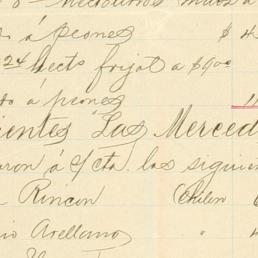 s á peones $ 4
24 hects frijol a $9.00
to á peones 11
ientes "Las Merced
aron á c/ cta. las siguien
Rincon (Chilen 6
io Arellano " 4